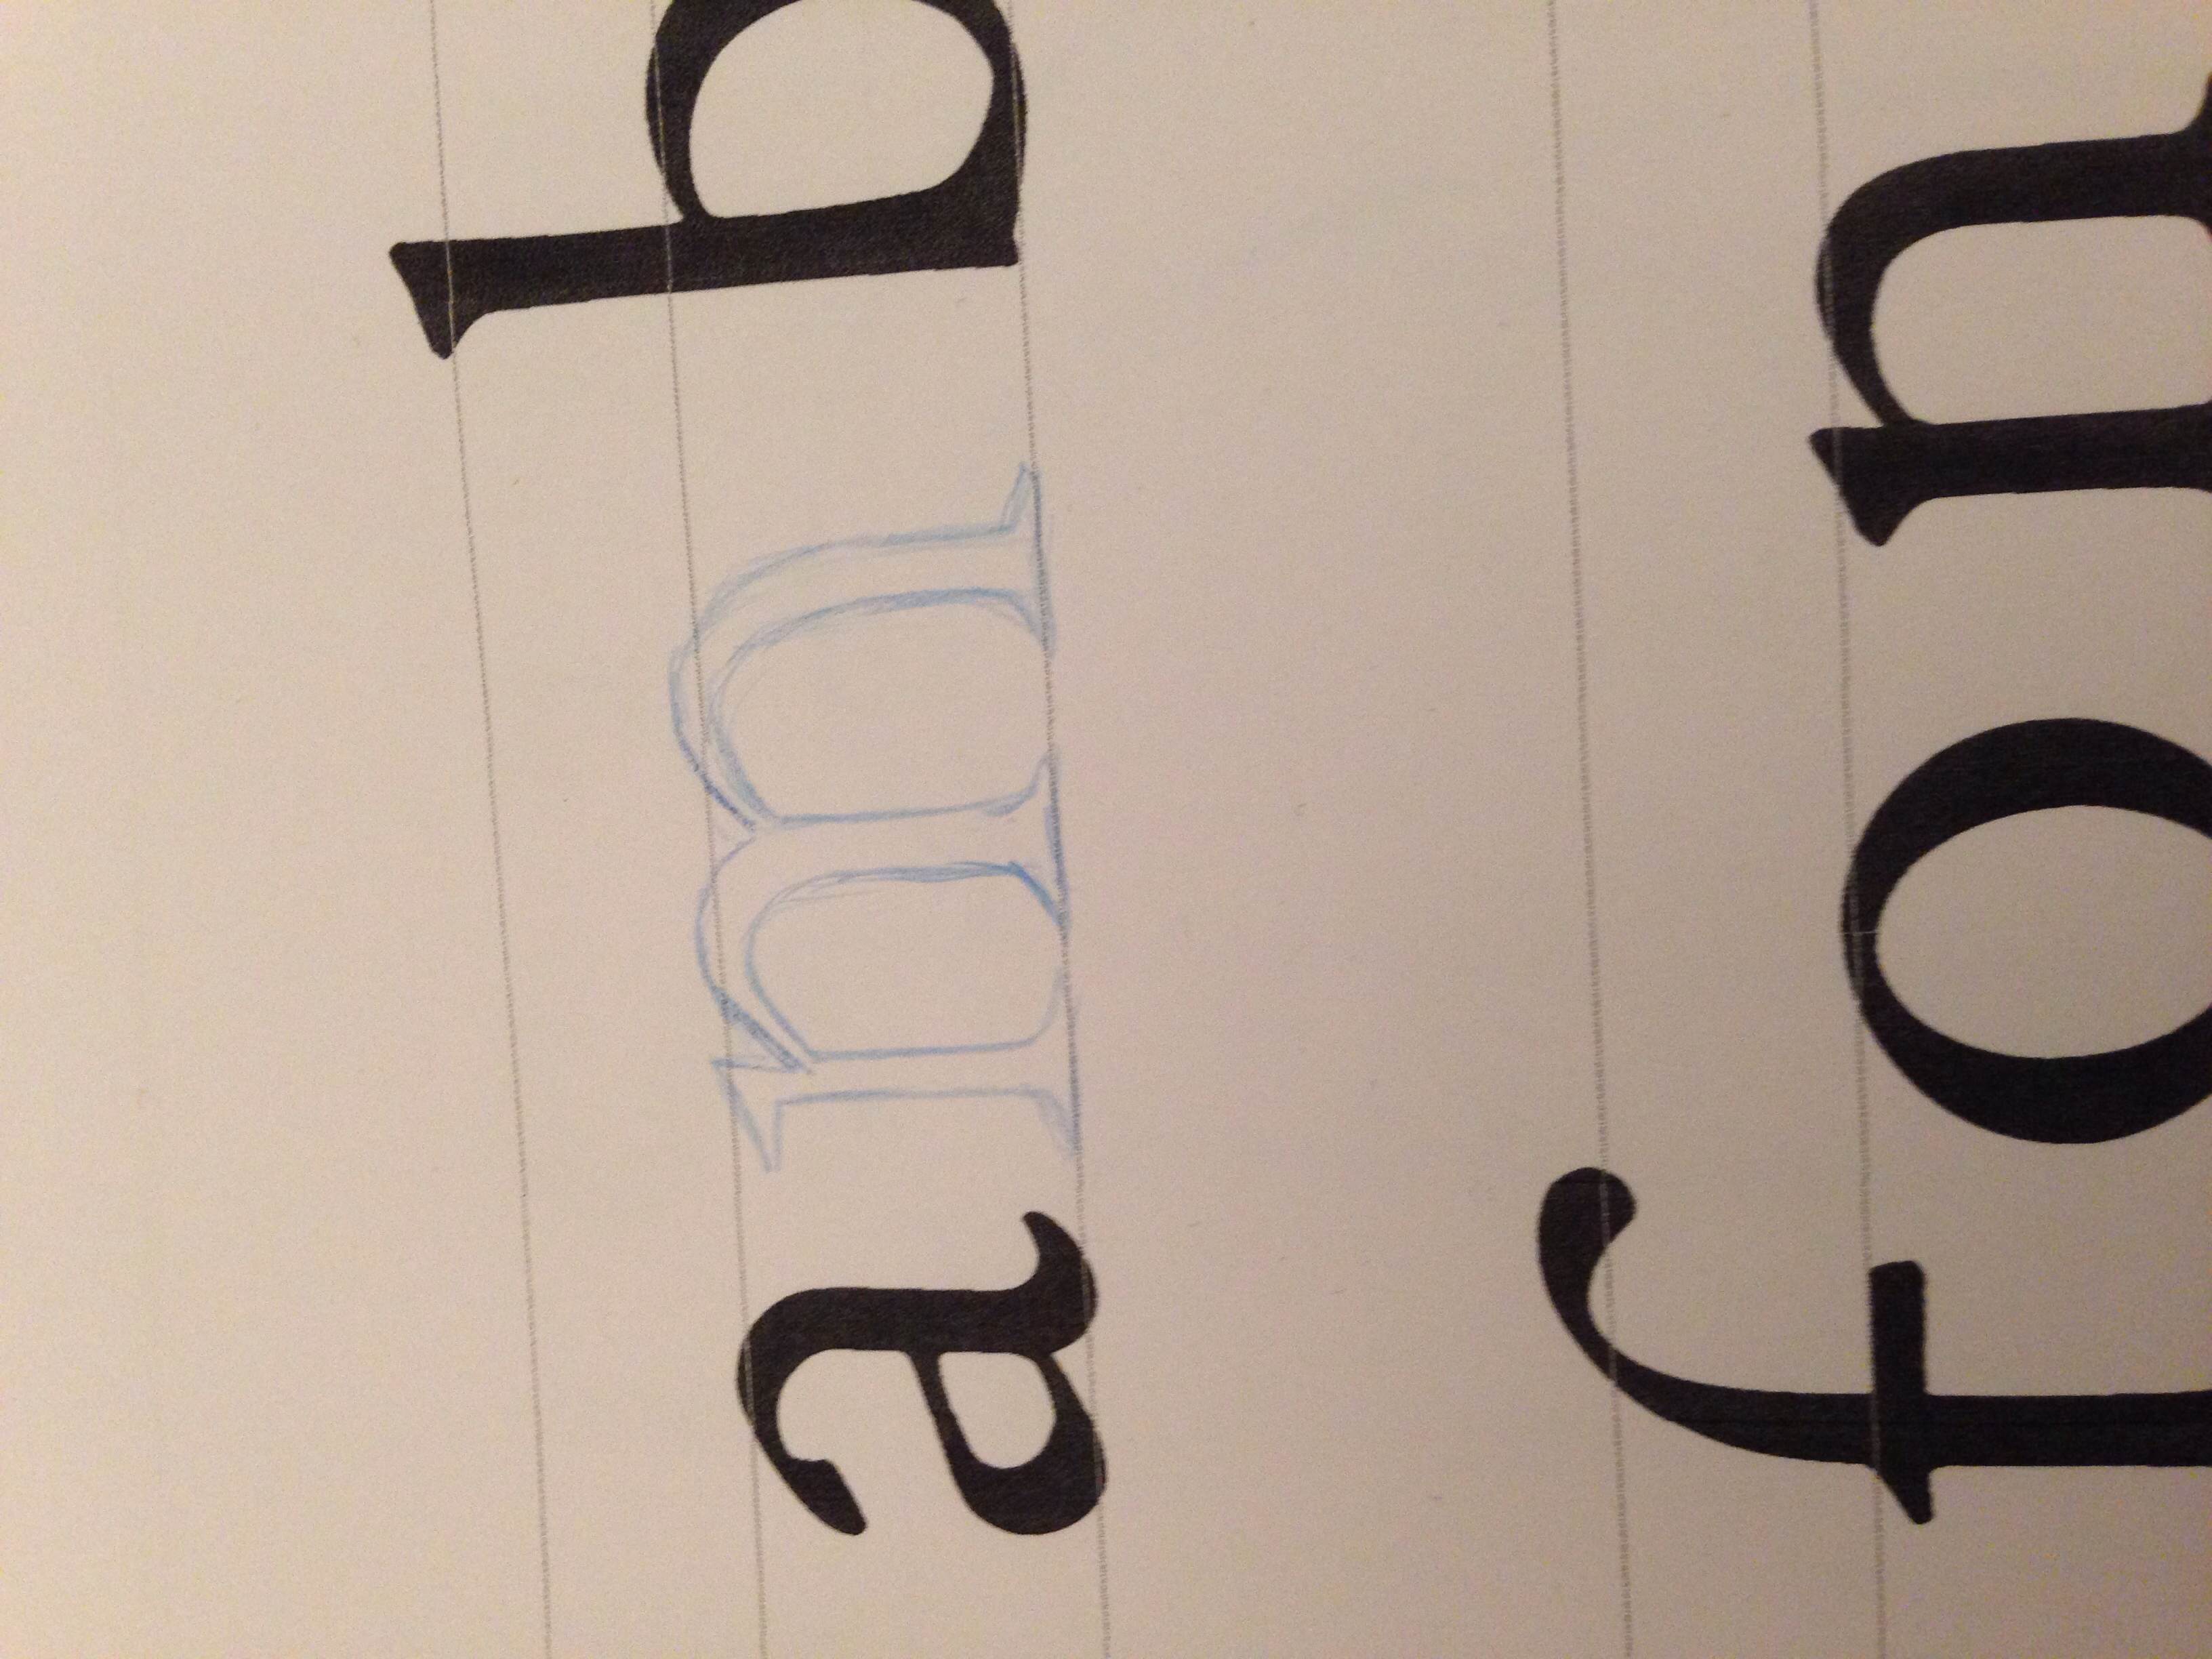 amb
fon